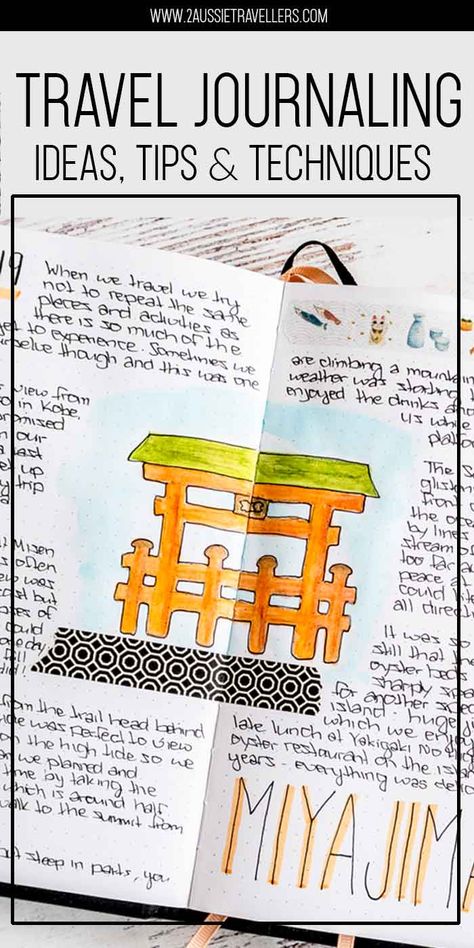 WWW.2AUSSIETRAVELLERS.COM
TRAVEL JOURNALING
IDEAS, TIPS & TECHNIQUES
19
When we travel we try
not to repeat the same
places and activities as
there is so much of the
to experience. Sometimes we
though and this was one
view from
in Kobe
our
up
trip
Misen
often
view was
but
of
could
one day.
fall
did!
from the trail head behind
was perfect to view
on the high tide so we
we planned and
time by taking the
which is around half
walk to the summit from
but steep in parts, you
are climbing a mountain
weather was starting
enjoyed the drinks and
us while
The
from
the
by lines
stream
too far
peace a
could
all direct
It was so
still that
oyster bed
sharply
for another
island - huge
which we enjoy
late lunch at Yakigaki No
oyster restaurant on the isla
years - everything was
MIYAJIMA